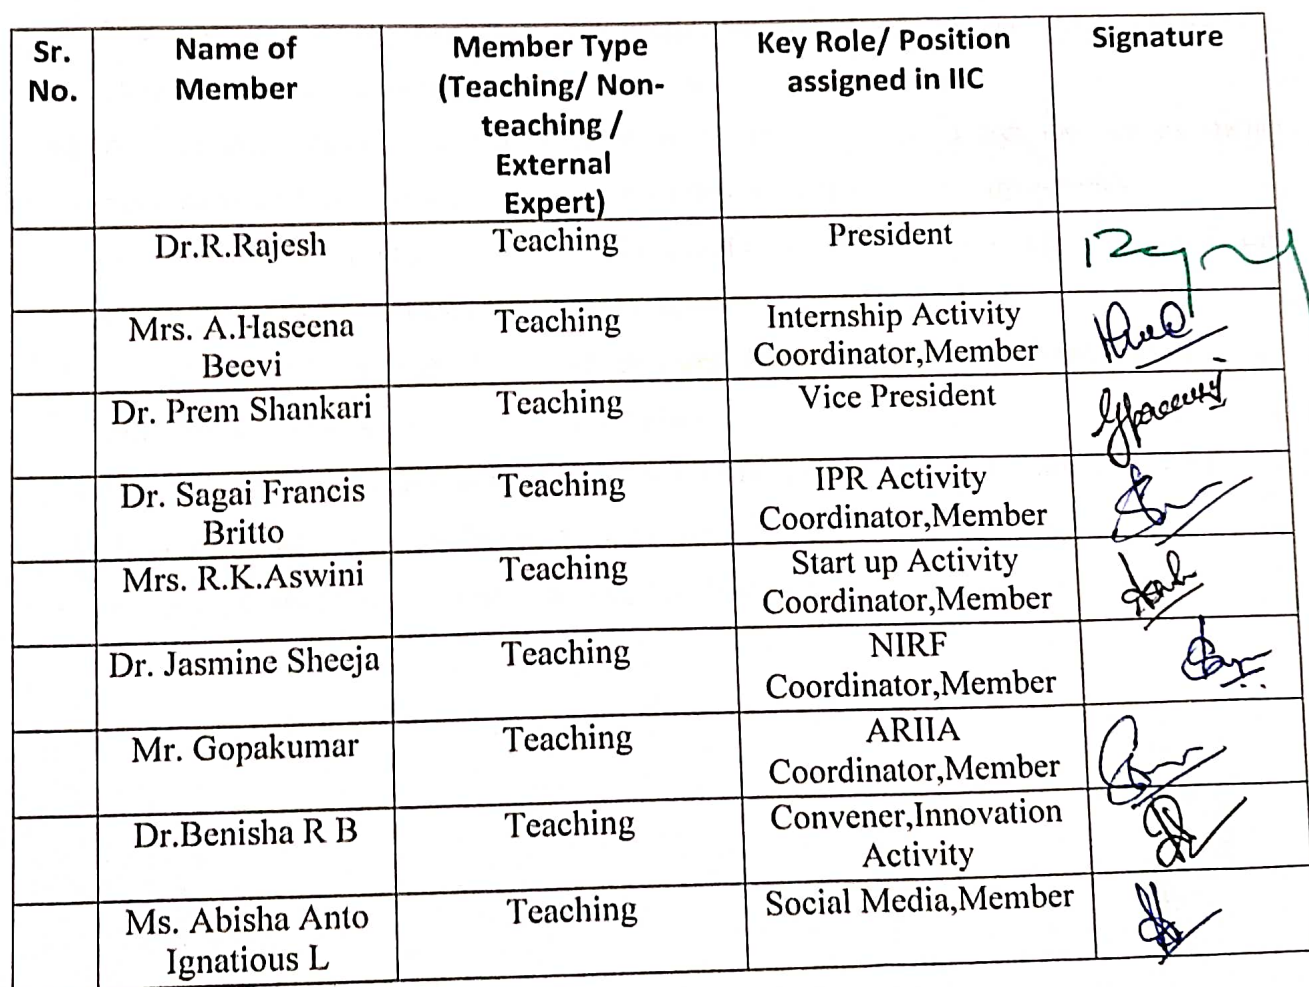 Sr.
No.
Name of
Member
Member Type
(Teaching/ Non-
teaching /
External
Expert)
Key Role/ Position
assigned in IIC
Signature
Dr.R.Rajesh
Teaching
President
Mrs. A.Haseena
Beevi
Teaching
Internship Activity
Coordinator,Member
Dr. Prem Shankari
Teaching
Vice President
Dr. Sagai Francis
Britto
Teaching
IPR Activity
Coordinator,Member
Mrs. R.K.Aswini
Teaching
Start up Activity
Coordinator,Member
Dr. Jasmine Sheeja
Teaching
NIRF
Coordinator,Member
Mr. Gopakumar
Teaching
ARIIA
Coordinator,Member
Dr.Benisha R B
Teaching
Convener,Innovation
Activity
Ms. Abisha Anto
Ignatious L
Teaching
Social Media,Member